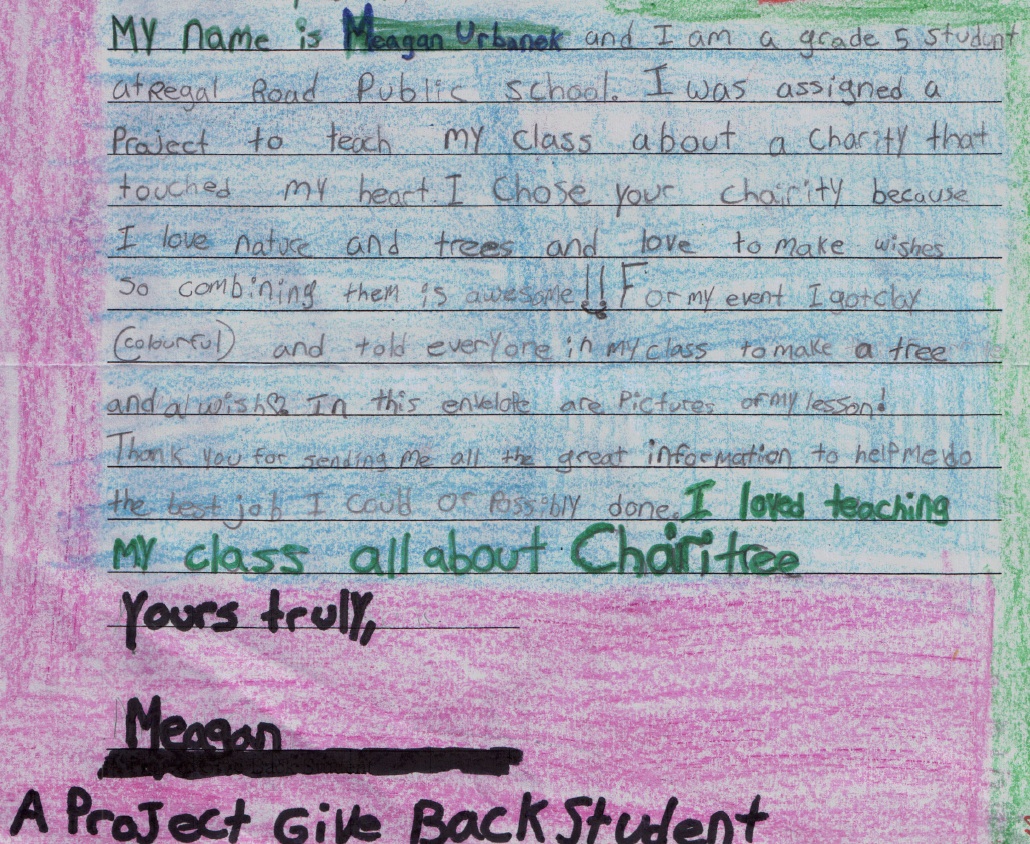 My name is Meagan Urbanek and I am a grade 5 student
at Regal Road Public school. I was assigned a
Project to teach my class about a charity that
touched my heart. I Chose your chairity because
I love nature and trees and love to make wishes
so combining them is awesome!! For my event I got clay
(colourful) and told everyone in my class to make a tree
and a wish♡. In this envelope are Pictures of my lesson!
Thank you for sending me all the great information to help me do
the best job I could of Possibly done. I loved teaching
my class all about Charitree
yours truly,
Meagan
A Project Give Back Student